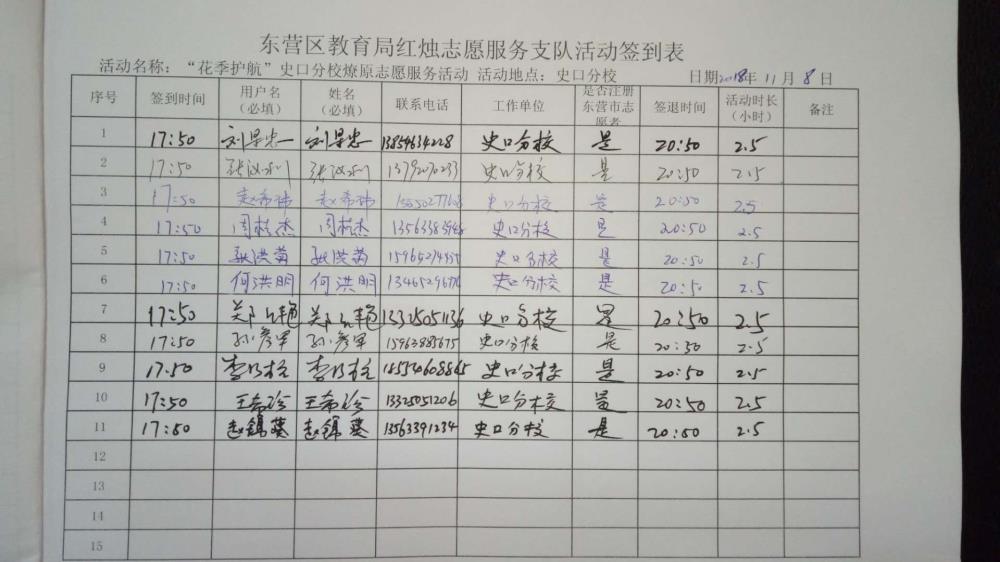 东营区教育局红烛志愿服务支队活动签到表
活动名称：“花季护航”史口分校燎原志愿服务活动 活动地点：史口分校 日期2018年11月8日
序号 签到时间 用户名（必填） 姓名（必填） 联系电话 工作单位 是否注册东营市志愿者 签退时间 活动时长（小时） 备注
1 17:50 史口分校 是 20:50 2.5
2 17:50 史口分校 是 20:50 2.5
3 17:50 赵希玮 赵希玮 史口分校 是 20:50 2.5
4 17:50 周桂杰 周桂杰 史口分校 是 20:50 2.5
5 17:50 史口分校 是 20:50 2.5
6 17:50 何洪明 何洪明 史口分校 是 20:50 2.5
7 17:50 史口分校 是 20:50 2.5
8 17:50 孙彦军 孙彦军 15963885675 史口分校 是 20:50 2.5
9 17:50 史口分校 是 20:50 2.5
10 17:50 王希珍 王希珍 13325051206 史口分校 是 20:50 2.5
11 17:50 赵锦葵 赵锦葵 13563391234 史口分校 是 20:50 2.5
12
13
14
15